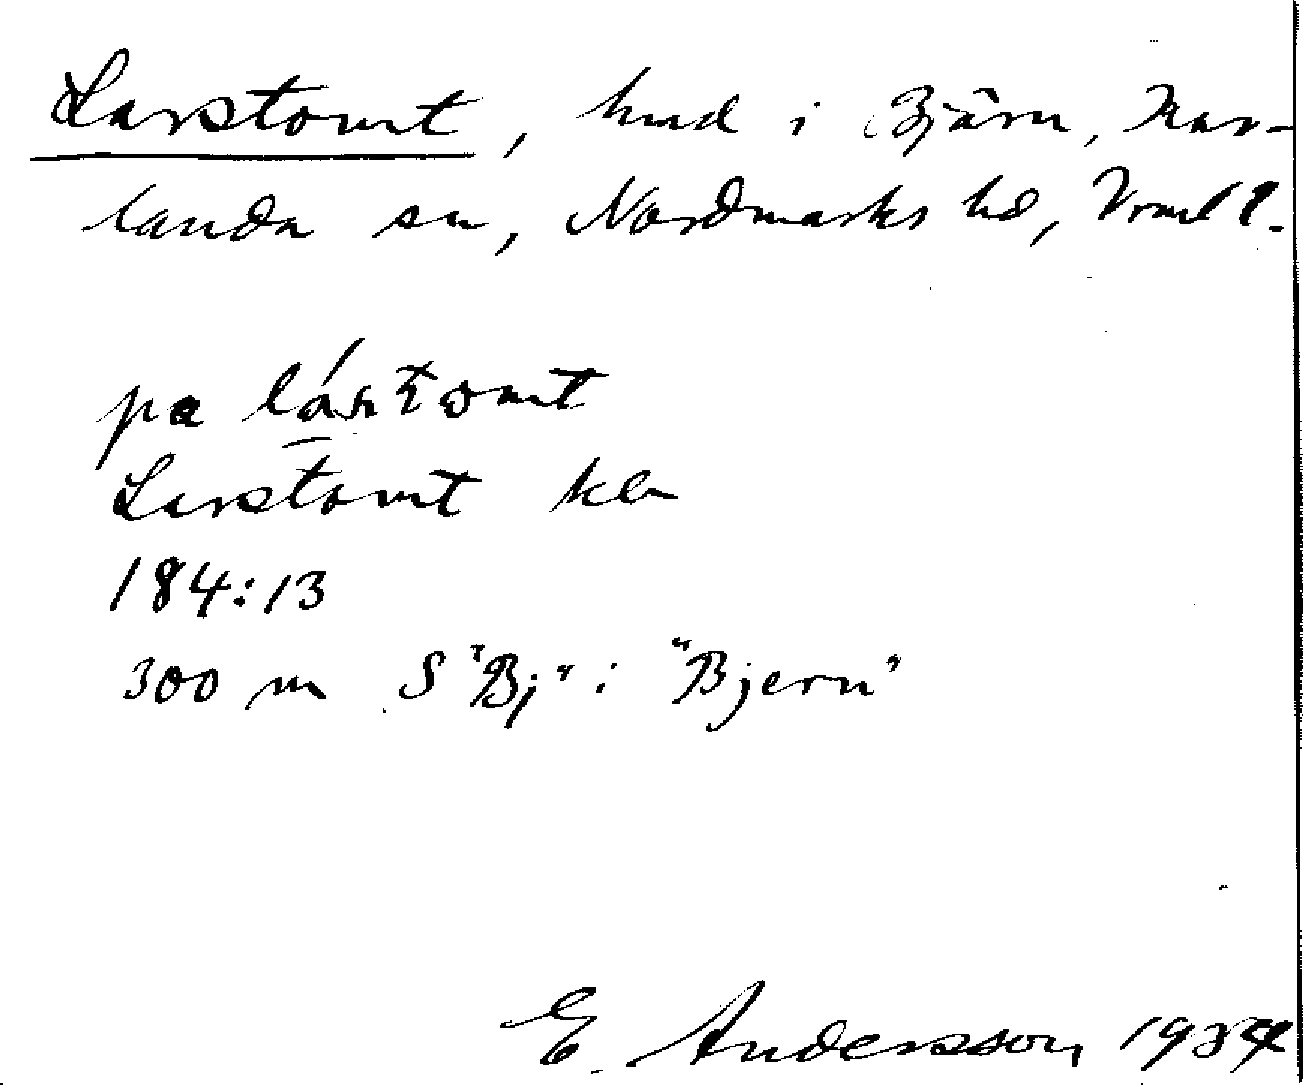 Larstomt, hmd i Björn, Kar-
landa sn, Nordmarks hd, Vrml l.
pa lárstomt
Larstomt kln
184:13
300 m S "Bj" i "Bjern"
E. Andersson 1934